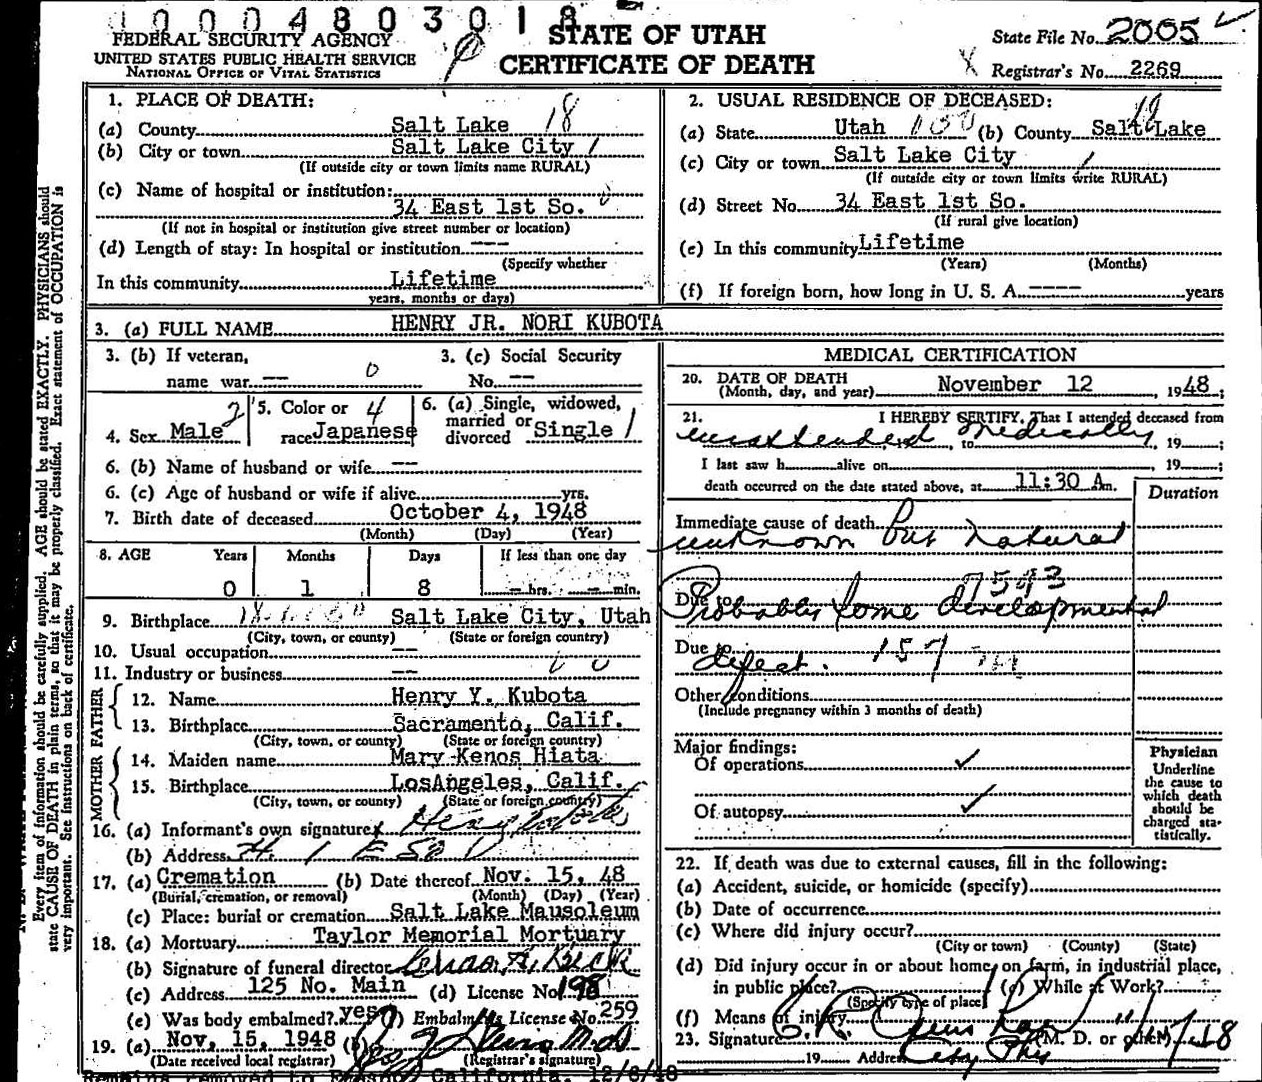 1000480301 8
FEDERAL SECURITY AGENCY
UNITED STATES PUBLIC HEALTH SERVICE
NATIONAL OFFICE OF VITAL STATISTICS
STATE OF UTAH
CERTIFICATE OF DEATH
State File No. 2005
Registrar's No. 2269
Every item of information should be carefully supplied. AGE should be stated EXACTLY. PHYSICIANS should
state CAUSE OF DEATH in plain terms, so that it may be properly classified. Exact statement of OCCUPATION is
very important. See instructions on back of certificate.
1. PLACE OF DEATH:
(a) County Salt Lake 18
(b) City or town Salt Lake City 1
(If outside city or town limits name RURAL)
(c) Name of hospital or institution:
34 East 1st So.
(If not in hospital or institution give street number or location)
(d) Length of stay: In hospital or institution ---
(Specify whether
In this community Lifetime
years, months or days)
2. USUAL RESIDENCE OF DECEASED:
(a) State Utah (b) County Salt Lake
(c) City or town Salt Lake City
(If outside city or town limits write RURAL)
(d) Street No. 34 East 1st So.
(If rural give location)
(e) In this community Lifetime
(Years) (Months)
(f) If foreign born, how long in U. S. A. ---- years
3. (a) FULL NAME HENRY JR. NORI KUBOTA
3. (b) If veteran, name war -- 0
3. (c) Social Security No. --
4. Sex Male 2
5. Color or race Japanese 4
6. (a) Single, widowed, married or divorced Single 1
6. (b) Name of husband or wife --
6. (c) Age of husband or wife if alive yrs.
7. Birth date of deceased October 4, 1948
(Month) (Day) (Year)
8. AGE Years Months Days If less than one day
0 1 8 -- hrs. -- min.
9. Birthplace Salt Lake City, Utah
(City, town, or county) (State or foreign country)
10. Usual occupation --
11. Industry or business --
FATHER
12. Name Henry Y. Kubota
13. Birthplace Sacramento, Calif.
(City, town, or county) (State or foreign country)
MOTHER
14. Maiden name Mary Kenos Hiata
15. Birthplace LosAngeles, Calif.
(City, town, or county) (State or foreign country)
16. (a) Informant's own signature
(b) Address
17. (a) Cremation (b) Date thereof Nov. 15, 48
(Burial, cremation, or removal) (Month) (Day) (Year)
(c) Place: burial or cremation Salt Lake Mausoleum
18. (a) Mortuary Taylor Memorial Mortuary
(b) Signature of funeral director
(c) Address 125 No. Main (d) License No. 198
(e) Was body embalmed? yes (f) Embalmer's License No. 259
19. (a) Nov. 15, 1948 (b)
(Date received local registrar) (Registrar's signature)
MEDICAL CERTIFICATION
20. DATE OF DEATH
(Month, day, and year) November 12, 1948;
21. I HEREBY CERTIFY, That I attended deceased from
unattended to medically, 19 ;
I last saw h alive on , 19 ;
death occurred on the date stated above, at 11:30 A m.
Duration
Immediate cause of death But
unknown but natural
7593
Due to Probably some developmental
Due to defect. 157
Other conditions
(Include pregnancy within 3 months of death)
Major findings:
Of operations ✓
Of autopsy ✓
Physician
Underline
the cause to
which death
should be
charged sta-
tistically.
22. If death was due to external causes, fill in the following:
(a) Accident, suicide, or homicide (specify)
(b) Date of occurrence
(c) Where did injury occur?
(City or town) (County) (State)
(d) Did injury occur in or about home, on farm, in industrial place,
in public place? (e) While at Work?
(Specify type of place)
(f) Means of injury
23. Signature (M. D. or other)
19 Address City Phy
Remains removed to Fresno, California. 12/6/48